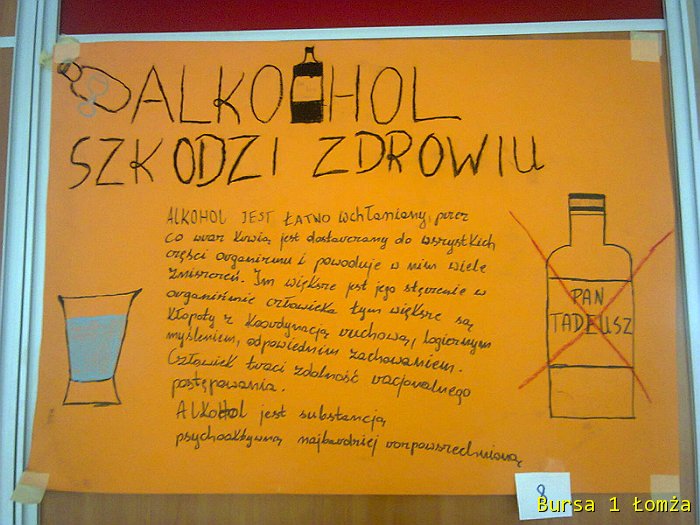 ALKOHOL
SZKODZI ZDROWIU
ALKOHOL JEST ŁATWO wchłaniany, przez
co wraz krwią jest dostarczany do wszystkich
części organizmu i powoduje w nim wiele
zniszczeń. Im większe jest jego stężenie w
organizmie człowieka tym większe są
kłopoty z koordynacją ruchową, logicznym
myśleniem, odpowiednim zachowaniem.
Człowiek traci zdolność racjonalnego
postępowania.
ALKOHOL jest substancją
psychoaktywną najbardziej rozpowszechnioną
PAN
TADEUSZ
8
Bursa 1 Łomża